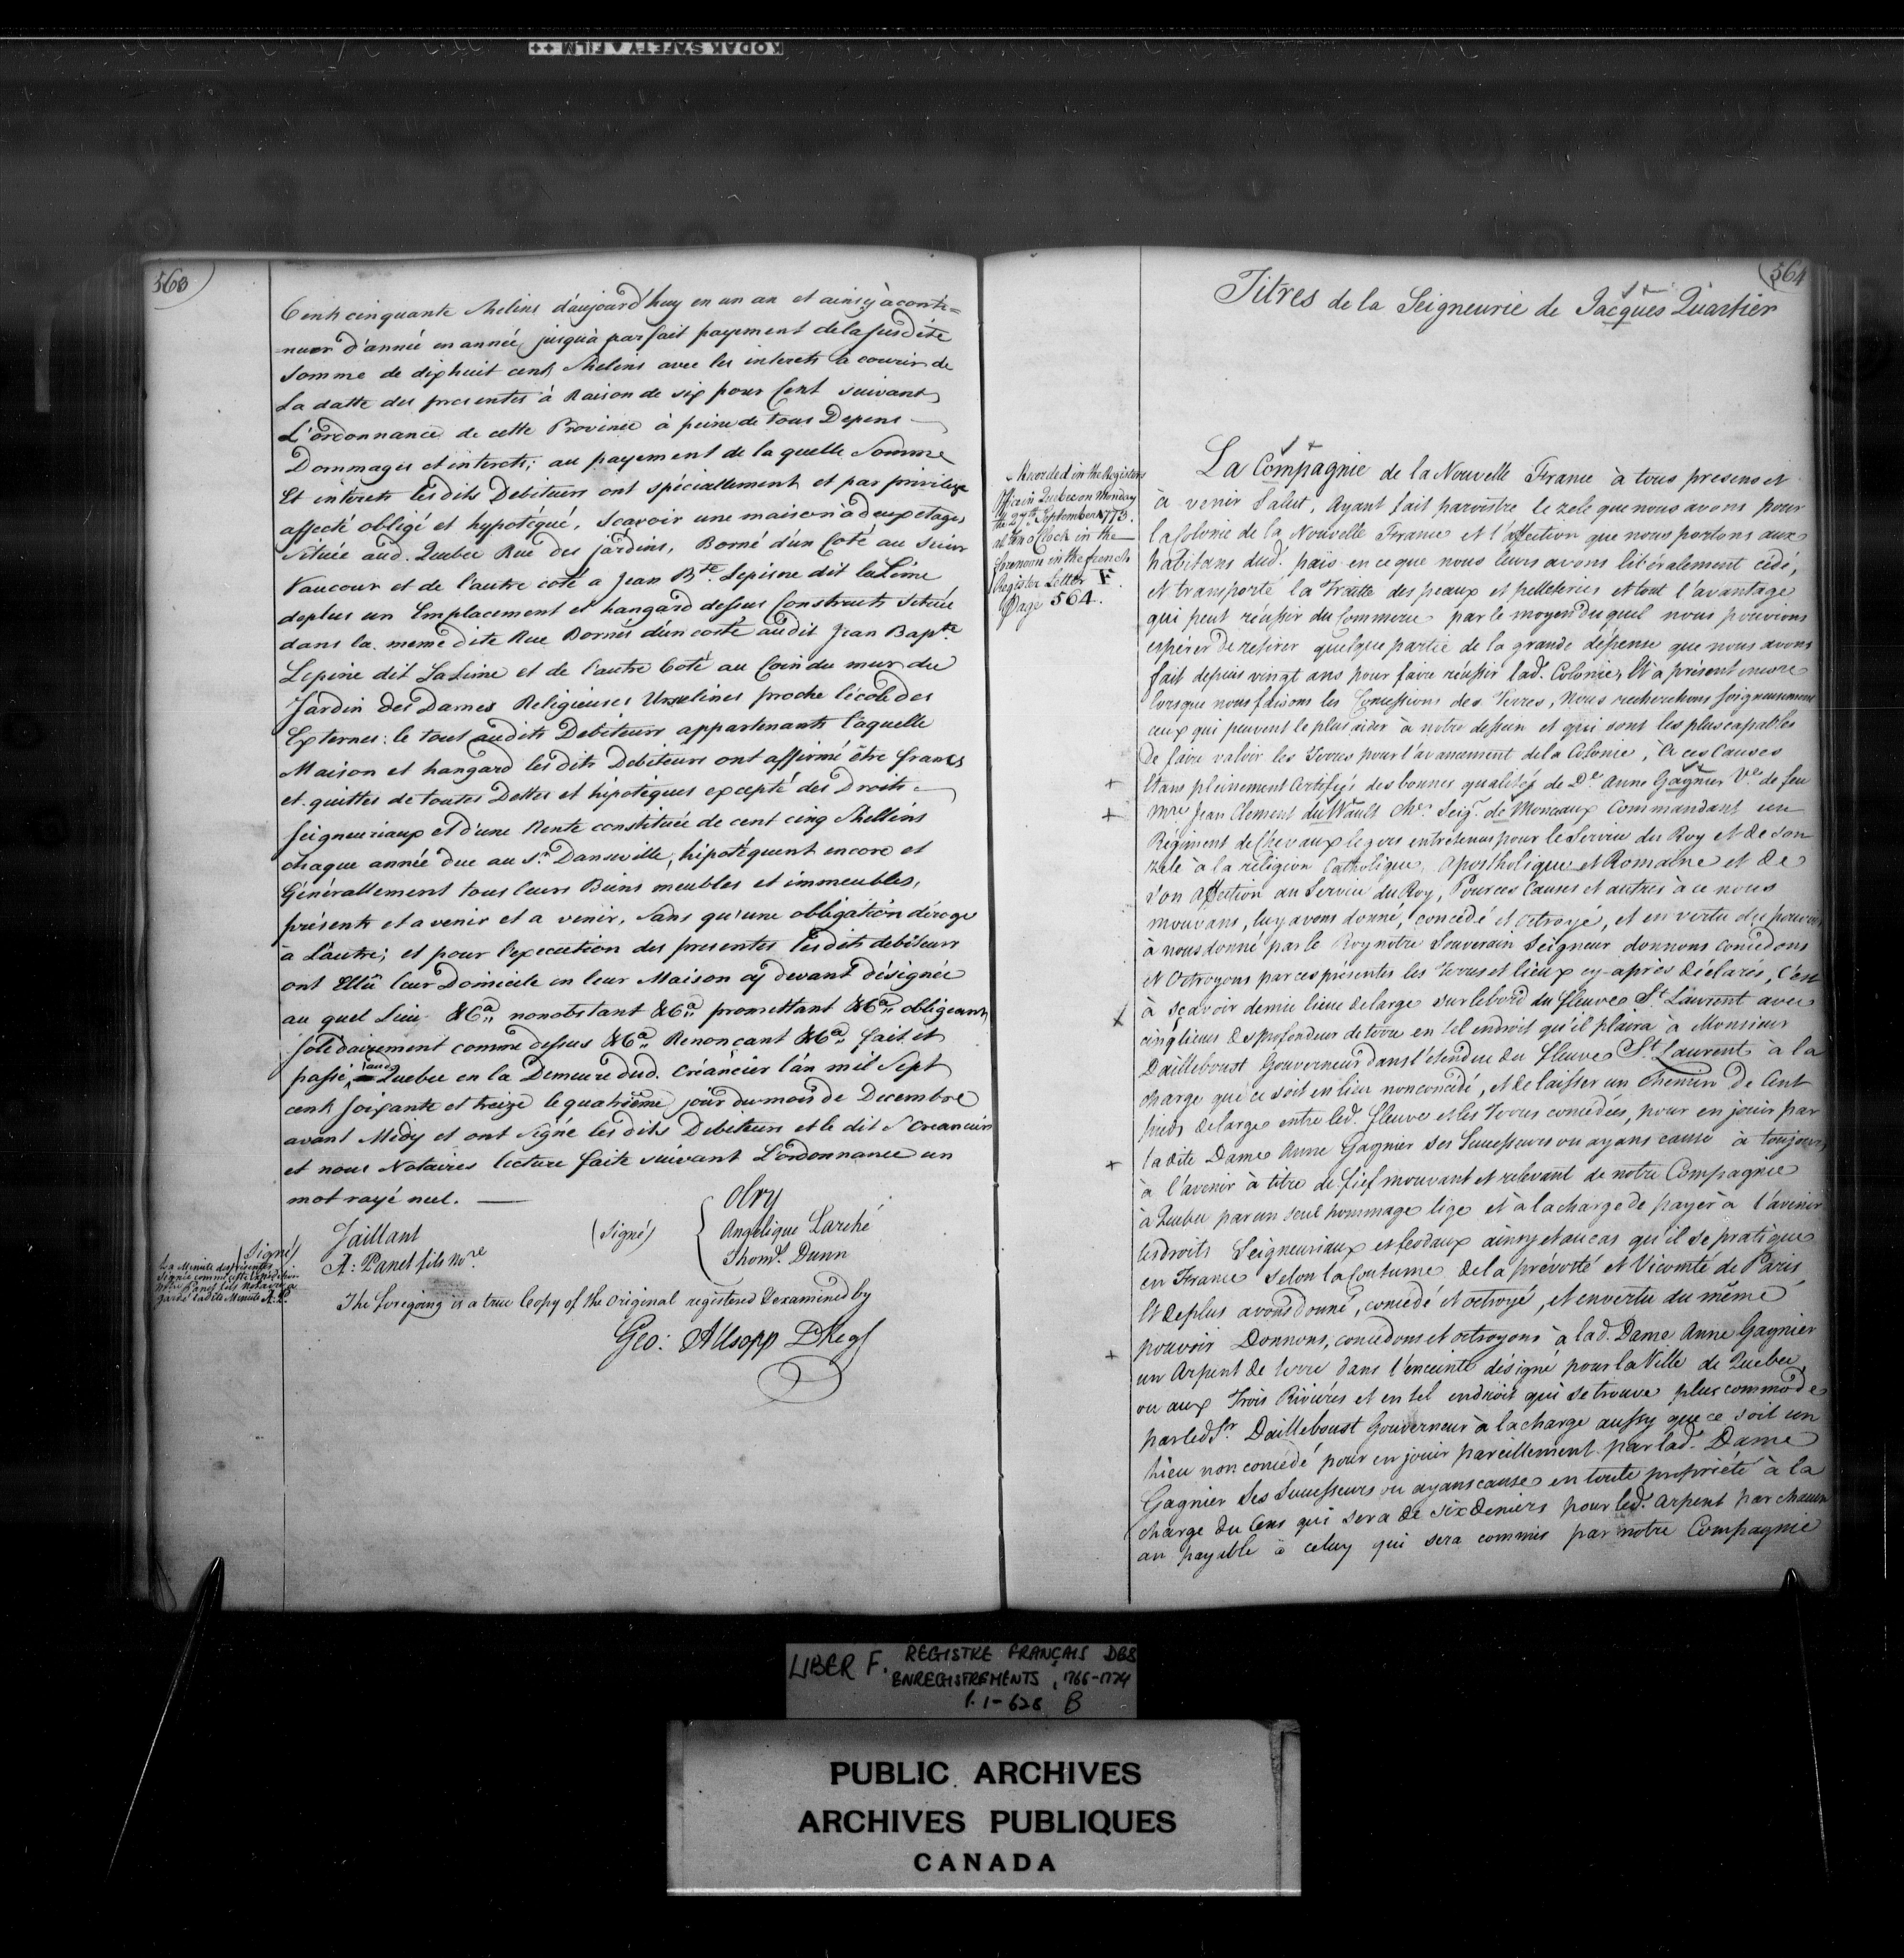 KODAK SAFETY ▲ FILM ++
563
Cent cinquante Shelins d'aujourd'huy en un an et ainsy à conti=
nuer d'année en année jusqu'à parfait payement de la susdite
Somme de dixhuit cent Shelins avec les interets à courir de
la datte des presentes à Raison de six pour Cent suivant
L'ordonnance de cette Province à peine de tous Depens
Dommages et interets; au payement de la quelle Somme
Et intérets lesdits Debiteurs ont spéciallement et par privilege
affecté obligé et hypotéqué, Scavoir une maison à deux etages
Située aud. Quebec Rue des jardins, Borné d'un Coté au Sieur
Vaucour et de l'autre coté a Jean Bte. Lepine dit la Lime
deplus un Emplacement et hangard dessus Construit Située
dans la meme dite Rue Bornés d'un costé audit Jean Bapte.
Lepine dit La Lime et de l'autre Coté au Coin du mur du
Jardin des Dames Religieuses Urselines proche l'école des
Externes: le tout audits Debiteurs appartenants l'aquelle
Maison et hangard lesdits Debiteurs ont affirmé être francs
et quittes de toutes Dettes et hipoteques excepté des Droits
Seigneuriaux et d'une Rente constituée de cent cinq Shellins
chaque année due au Sr. Danseville, hipotéquent encore et
Générallement tous leurs Biens meubles et immeubles,
présents et a venir et a venir, Sans qu'une obligation déroge
à L'autre; et pour l'execution des presentes lesdits debiteurs
ont Ellû leur Domicile en leur Maison cy devant désignée
au quel Lieu &Ca. nonobstant &Ca. promettant &Ca. obligeant
solidairement comme dessus &Ca. Renonçant &Ca. fait et
passé aud. Quebec en la Demeure dud. Créancier l'an mil Sept
cent soixante et treize le quatrième jour du mois de Decembre
avant Midy et ont signé les dits Debiteurs et le dit S. Creancier
et nous Notaires lecture faite suivant L'ordonnance un
mot rayé nul.
(Signé)
Jaillant
A: Panet fils Nore.
(Signé)
Olry
Angelique Larché
Thoms. Dunn
La Minute des presentes
Signée comme cette Expedition
Mtre Panet fils Notaire a
gardé ladite Minute A. P.
The foregoing is a true Copy of the Original registered & examined by
Geo: Allsopp D Regr
564
Titres de la Seigneurie de Jacques Quartier
Recorded in the Registers
Office in Quebec on Monday
the 27th. September 1773.
at Ten o'Clock in the
forenoon in the french
Register Letter F.
Page 564.
La Compagnie de la Nouvelle France à tous presens et
à venir Salut, Ayant fait paroistre le zele que nous avons pour
la Colonie de la Nouvelle France et l'affection que nous portons aux
habitans dud. païs en ce que nous leurs avons libéralement cédé,
et transporté la Traitte des peaux et pelleteries et tout l'avantage
qui peut réussir du Commerce par le moyen duquel nous pouvions
espérer de retirer quelque partie de la grande dépense que nous avons
fait depuis vingt ans pour faire réussir lad. Colonie, Et à présent encore
lorsque nous faisons les Concessions des Terres, Nous recherchons soigneusement
ceux qui peuvent le plus aider à notre dessein et qui sont les plus capables
de faire valoir les Terres pour l'avancement de la Colonie, A ces Causes
Etans pleinement certifiés des bonnes qualités de De. Anne Gagnier Ve. de feu
Mre Jean Clement du Wault Chr. Seigr. de Monceaux Commandant un
Régiment de Chevaux legers entretenus pour le Service du Roy et de son
zele à la religion Catholique, Aposthotique et Romaine et de
s'on affection au Service du Roy, Pour ces Causes et autres à ce nous
mouvans, luy avons donné, concédé et Octroyé, et en vertu du pouvoir
à nous donné par le Roy notre Souverain Seigneur donnons concedons
et Octroyons par ces présentes les Terres et lieux cy-après déclarés, C'est
à sçavoir demie lieue de large sur le bord du fleuve St. Laurent avec
cinq lieues de profondeur de terre en tel endroit qu'il plaira à Monsieur
Dailleboust Gouverneur dans l'étendue du fleuve St. Laurent à la
charge que ce soit en lieu non concédé, et de laisser un Chemin de Cent
pieds de large entre led. fleuve et les Terres concédées, pour en jouir par
ladite Dame Anne Gagnier ses Successeurs ou ayans cause à toujours
à l'avenir à titre de fief mouvant et relevant de notre Compagnie
à Quebec par un seul hommage lige et à la charge de payer à l'avenir
les droits Seigneuriaux et feodaux ainsy et au cas qu'il se pratique
en France selon la Coutume de la prévoté et Vicomté de Paris,
Et deplus avons donné, concédé et octroyé, et en vertu du même
pouvoir Donnons, concedons et octroyons à lad. Dame Anne Gagnier
un Arpent de terre dans l'enceinte désigné pour la Ville de Quebec,
ou aux Trois Rivieres et en tel endroit qui se trouve plus commode
par led Sr. Dailleboust Gouverneur à la charge aussy que ce soit un
Lieu non concédé pour en jouir pareillement par lad. Dame
Gagnier ses Successeurs ou ayans cause en toute propriété à la
charge du Cens qui sera de six Deniers pour led. Arpent par chacun
an payable à celuy qui sera commis par notre Compagnie
LIBER F. REGISTRE FRANÇAIS DES
ENREGISTREMENTS, 1766-1774
P. 1-628 B
PUBLIC ARCHIVES
ARCHIVES PUBLIQUES
CANADA